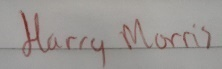 Harry Morris